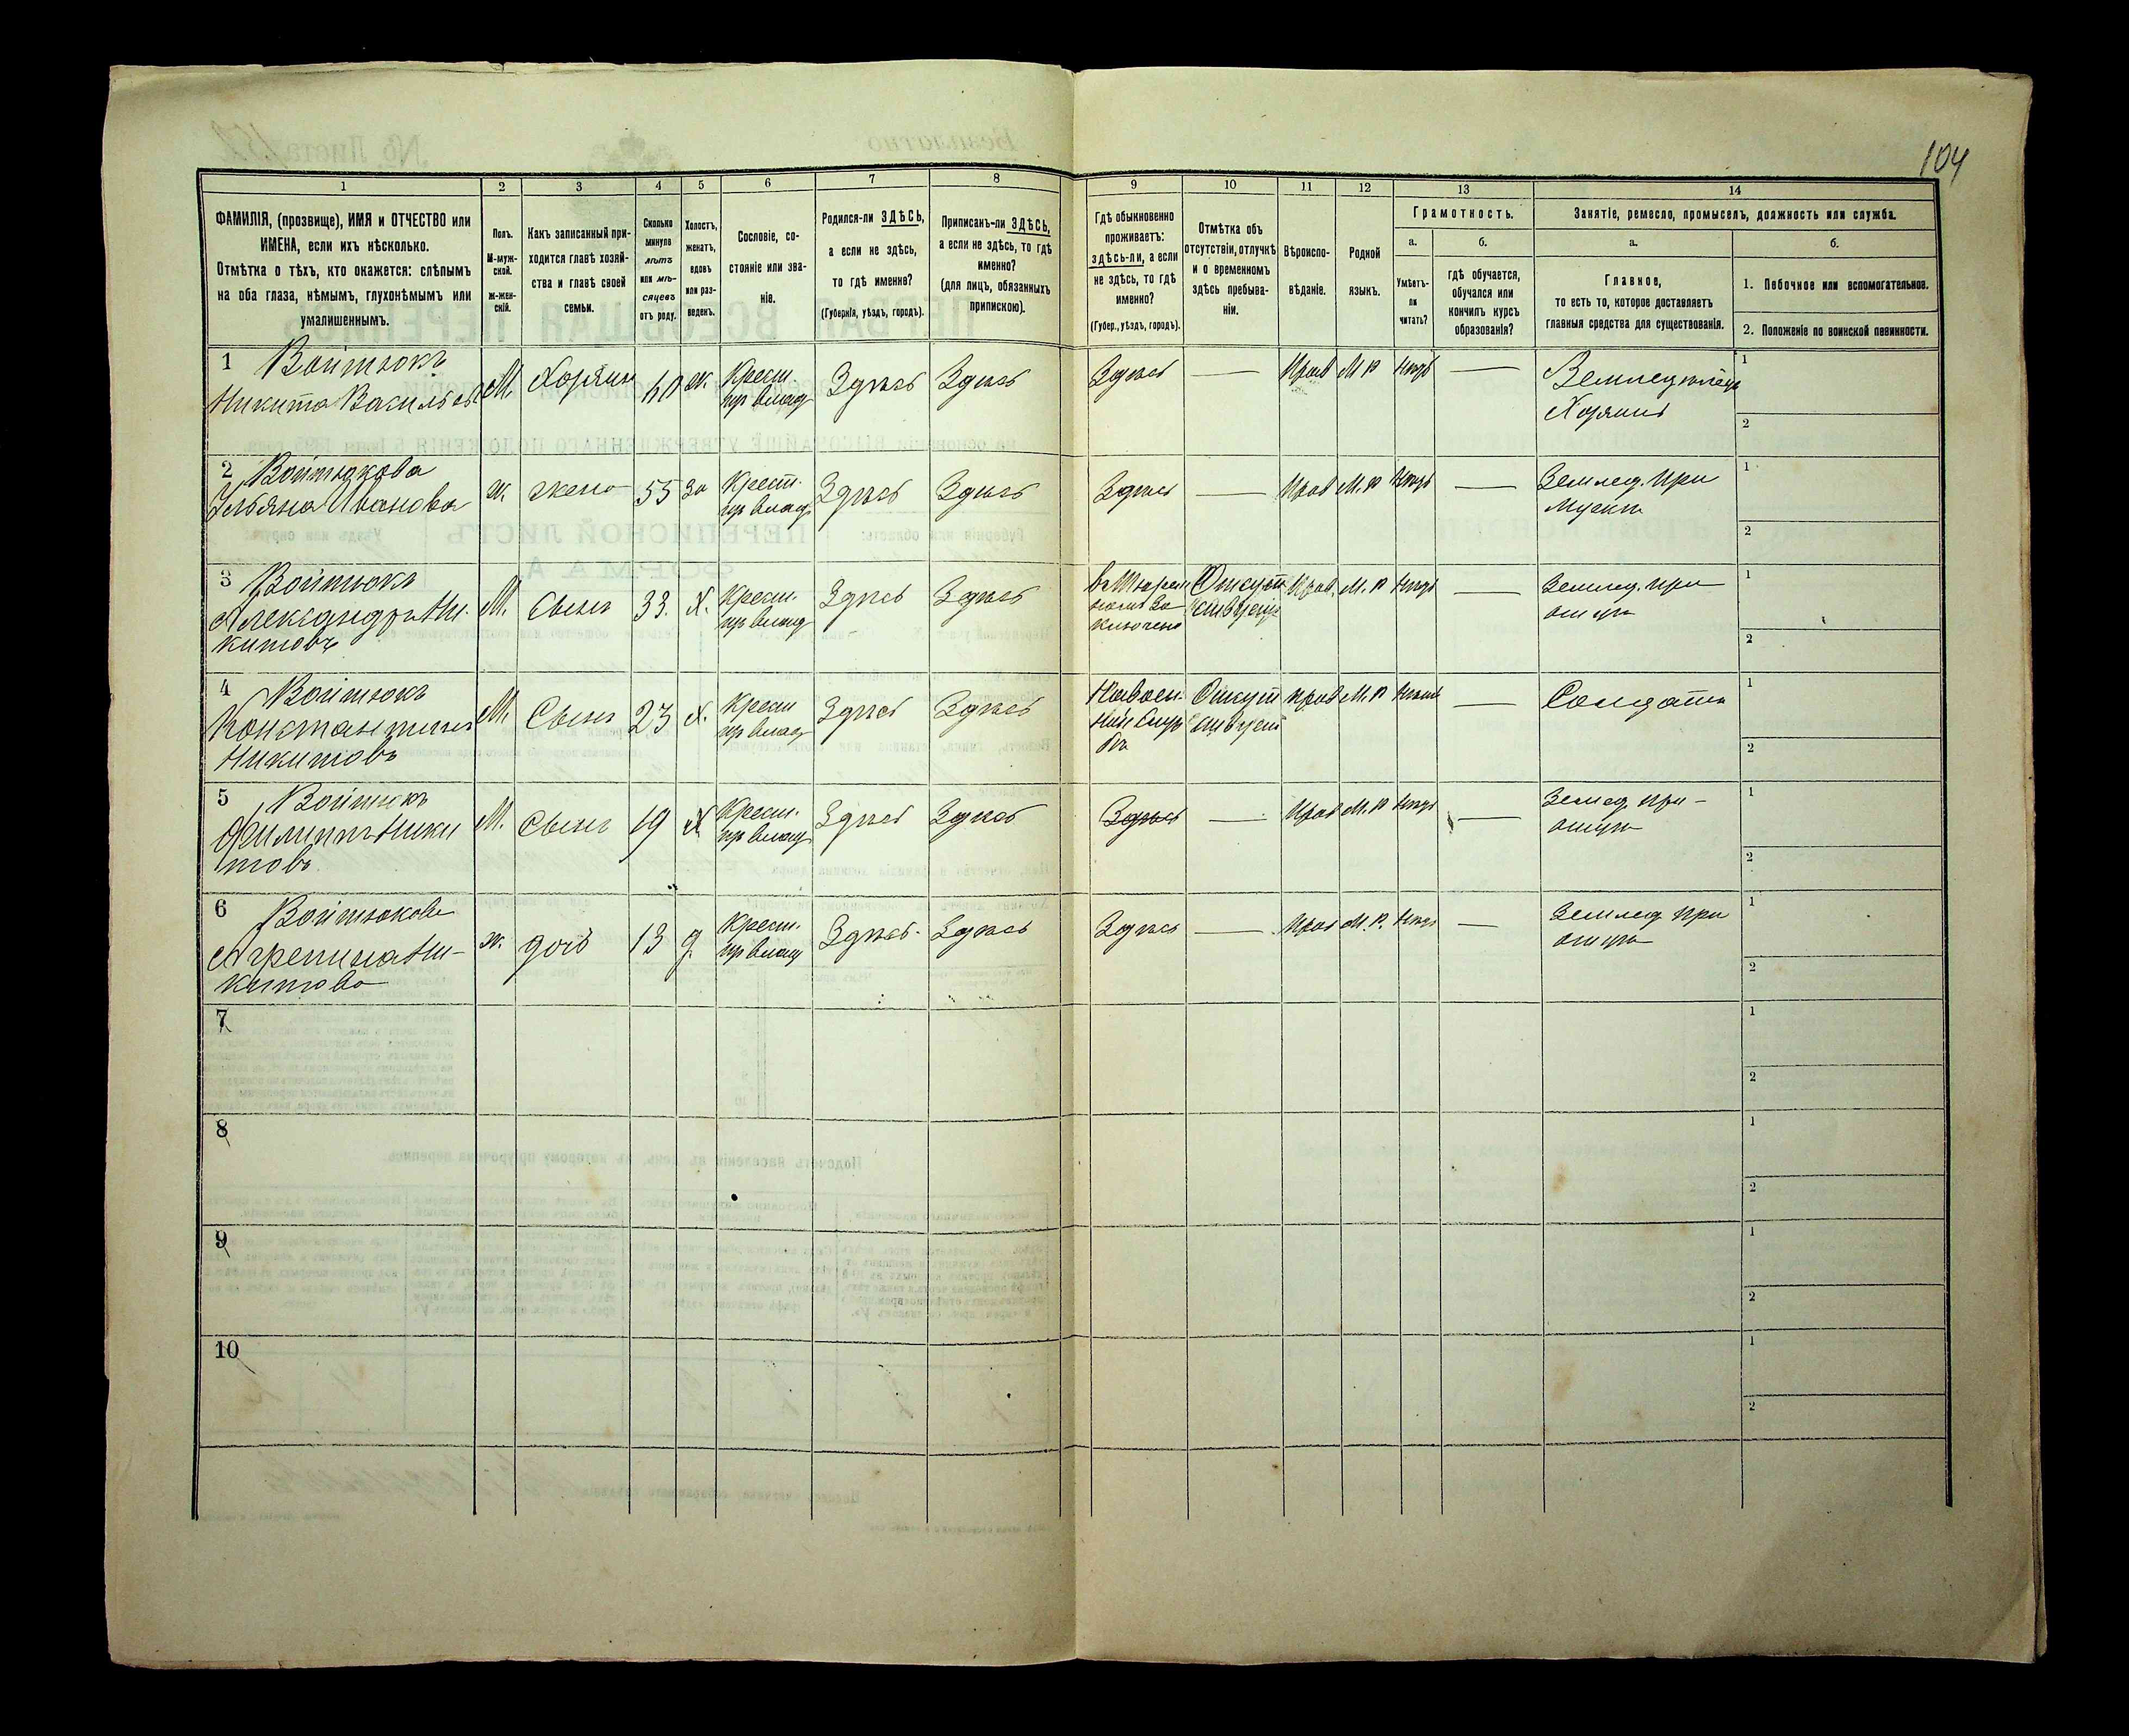 104
1 2 3 4 5 6 7 8 9 10 11 12 13 14
ФАМИЛІЯ, (прозвище), ИМЯ и ОТЧЕСТВО или
ИМЕНА, если ихъ нѣсколько.
Отмѣтка о тѣхъ, кто окажется: слѣпымъ
на оба глаза, нѣмымъ, глухонѣмымъ или
умалишеннымъ.
Полъ.
М-муж-
ской.
Ж-жен-
скій.
Какъ записанный при-
ходится главѣ хозяй-
ства и главѣ своей
семьи.
Сколько
минуло
лѣтъ
или мѣ-
сяцевъ
отъ роду.
Холостъ,
женатъ,
вдовъ
или раз-
веденъ.
Сословіе, со-
стояніе или зва-
ніе.
Родился-ли ЗДѢСЬ,
а если не здѣсь,
то гдѣ именно?
(Губернія, уѣздъ, городъ).
Приписанъ-ли ЗДѢСЬ,
а если не здѣсь, то гдѣ
именно?
(для лицъ, обязанныхъ
припискою).
Гдѣ обыкновенно
проживаетъ:
здѣсь-ли, а если
не здѣсь, то гдѣ
именно?
(Губер., уѣздъ, городъ).
Отмѣтка объ
отсутствіи, отлучкѣ
и о временномъ
здѣсь пребыва-
ніи.
Вѣроиспо-
вѣданіе.
Родной
языкъ.
Грамотность.
а.
Умѣетъ-
ли
читать?
б.
гдѣ обучается,
обучался или
кончилъ курсъ
образованія?
Занятіе, ремесло, промыселъ, должность или служба.
а.
Главное,
то есть то, которое доставляетъ
главныя средства для существованія.
б.
1. Побочное или вспомогательное.
2. Положеніе по воинской повинности.
1 Войтюкъ
Никита Васильевъ
М. Хозяин ж. Крест.
пр влад
Здѣсь Здѣсь Здѣсь — Прав М Р Нѣтъ —
Земледѣлецъ
Хозяинъ
1
2
2 Войтюкова
Ульяна Иванова
ж. жена 55 За Крест.
пр влад
Здѣсь Здѣсь Здѣсь — Прав М.Р Нѣтъ —
Землед. при
мужѣ
1
2
3 Войтюкъ
Александръ Ни-
китовъ
М. Сынъ 33. Х. Крест.
пр влад
Здѣсь Здѣсь
въ Тюрем
номъ За
ключено
Отсут
ствует
Прав. М. Р Нѣтъ —
Землед. при
отцѣ
1
2
4 Войтюкъ
Константинъ
Никитовъ
М. Сынъ 23 Х. Крест
пр влад
Здѣсь Здѣсь
На воен.
ной служ
бѣ
Отсут
ствует
Прав М. Р —
Солдатъ
1
2
5 Войтюкъ
Филиппъ Ники
товъ
М. Сынъ 19 Х Крест.
пр влад
Здѣсь Здѣсь Здѣсь — Прав М. Р Нѣтъ —
Землед. при-
отцѣ
1
2
6 Войтюкова
Агрепина Ни-
китова
ж. дочь 13 д. Крест.
пр влад
Здѣсь. Здѣсь Здѣсь — Прав М. Р. Нѣтъ —
Землед при
отцѣ
1
2
7
1
2
8
1
2
9
1
2
10
1
2